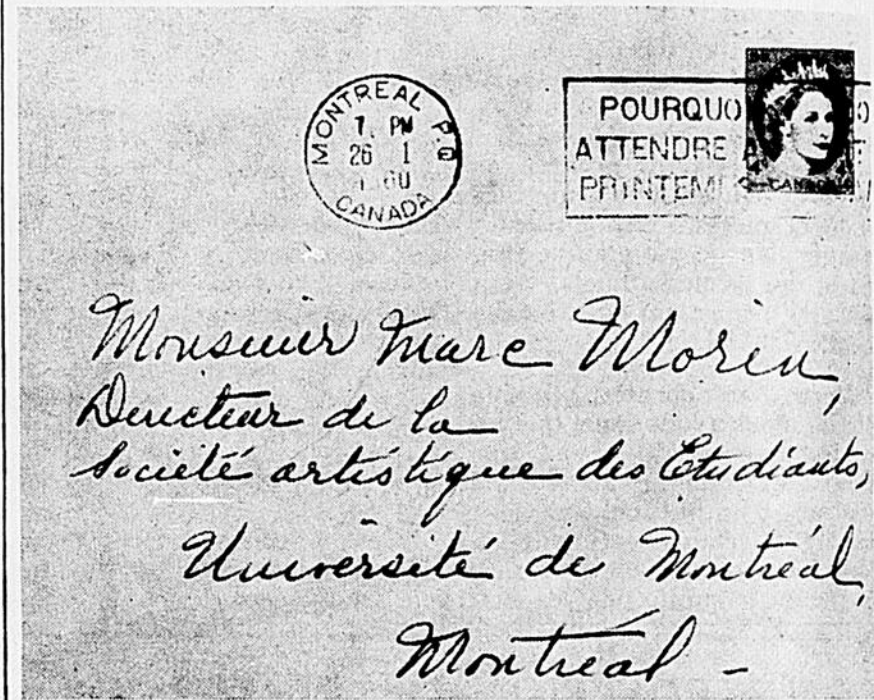 MONTREAL P.Q
7 PM
26 1
60
CANADA
POURQUO
ATTENDRE
PRINTEM
CANADA
Monsieur Marc Morin,
Directeur de la
Société artistique des Etudiants,
Université de Montréal,
Montréal -